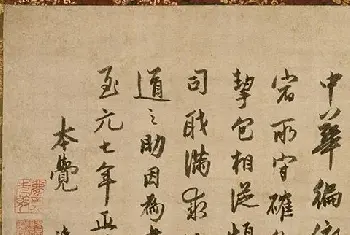 中華編
岩所官確
挈包相從
司職滿求
道之助因為
至元七年正
本覺